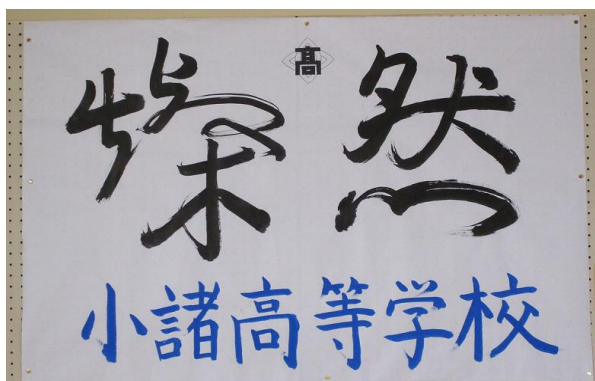 髙
燦然
小諸高等学校